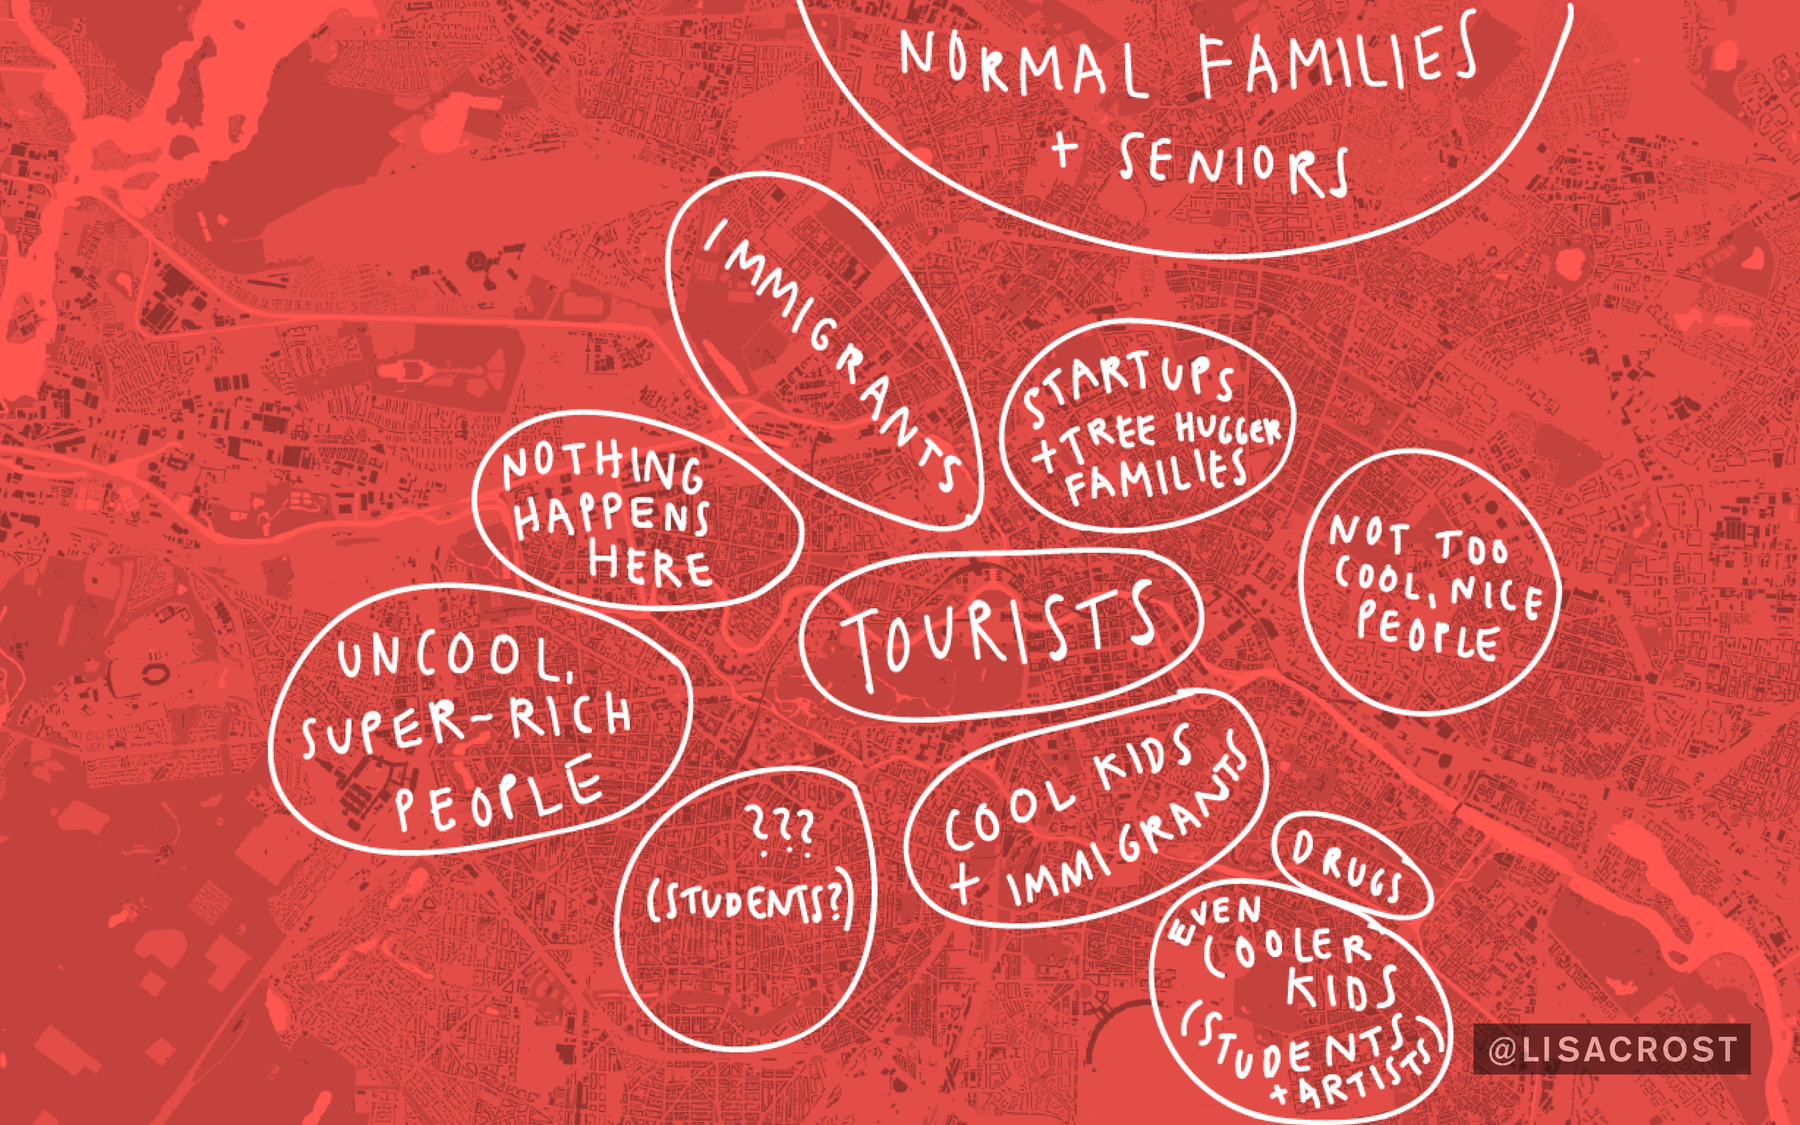 NORMAL FAMILIES
+ SENIORS
IMMIGRANTS
STARTUPS
+ TREE HUGGER
FAMILIES
NOTHING
HAPPENS
HERE
NOT TOO
COOL, NICE
PEOPLE
TOURISTS
UNCOOL,
SUPER-RICH
PEOPLE
COOL KIDS
+ IMMIGRANTS
???
(STUDENTS?)
DRUGS
EVEN
COOLER
KIDS
(STUDENTS
+ ARTISTS)
@LISACROST